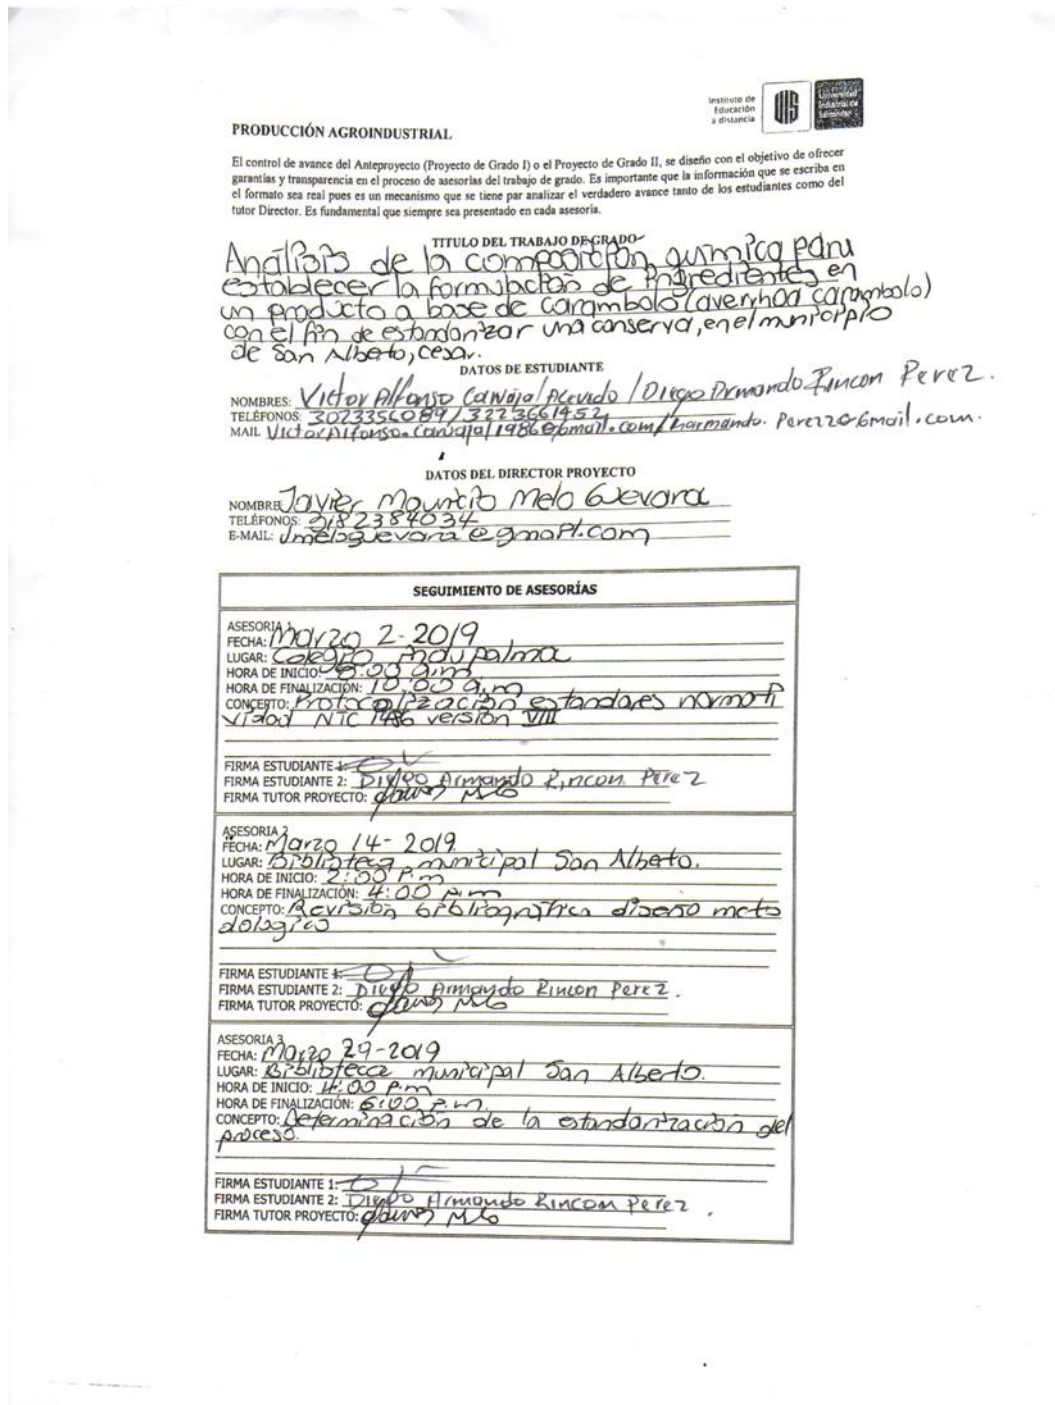 Instituto de
Educación
a distancia
Universidad
Industrial de
Santander
PRODUCCIÓN AGROINDUSTRIAL
El control de avance del Anteproyecto (Proyecto de Grado I) o el Proyecto de Grado II, se diseño con el objetivo de ofrecer
garantías y transparencia en el proceso de asesorías del trabajo de grado. Es importante que la información que se escriba en
el formato sea real pues es un mecanismo que se tiene par analizar el verdadero avance tanto de los estudiantes como del
tutor Director. Es fundamental que siempre sea presentado en cada asesoría.
TITULO DEL TRABAJO DE GRADO
Análisis de la composición química para
establecer la formulación de ingredientes en
un producto a base de carambolo (averrhoa carambolo)
con el fin de estandarizar una conserva, en el municipio
de San Alberto, Cesar.
DATOS DE ESTUDIANTE
NOMBRES: Victor Alfonso Carvajal Acevedo / Diego Armando Rincon Perez.
TELÉFONOS: 3023356089 / 3223661452
MAIL Victor Alfonso.carvajal1986@gmail.com /
DATOS DEL DIRECTOR PROYECTO
NOMBRE Javier Mauricio Melo Guevara
TELÉFONOS: 3182384034
E-MAIL: Jmeloguevara@gmail.com
SEGUIMIENTO DE ASESORÍAS
ASESORIA 1
FECHA: Marzo 2-2019
LUGAR: Colegio Indupalma
HORA DE INICIO: 8:00 a.m
HORA DE FINALIZACIÓN: 10:00 a.m
CONCEPTO: Protocolización estandares normati
vidad NTC 1486 versión VIII
FIRMA ESTUDIANTE 1:
FIRMA ESTUDIANTE 2: Diego Armando Rincon Perez
FIRMA TUTOR PROYECTO: Javier Melo
ASESORIA 2
FECHA: Marzo 14-2019.
LUGAR: Biblioteca municipal San Alberto.
HORA DE INICIO: 2:00 P.m
HORA DE FINALIZACIÓN: 4:00 p.m
CONCEPTO: Revisión bibliográfica diseño meto
dologico
FIRMA ESTUDIANTE 1:
FIRMA ESTUDIANTE 2: Diego Armando Rincon Perez.
FIRMA TUTOR PROYECTO: Javier Melo
ASESORIA 3
FECHA: Marzo 29-2019
LUGAR: Biblioteca municipal San Alberto.
HORA DE INICIO: 4:00 p.m
HORA DE FINALIZACIÓN: 6:00 p.m.
CONCEPTO: Determinación de la estandarización del
proceso.
FIRMA ESTUDIANTE 1:
FIRMA ESTUDIANTE 2: Diego Armando Rincon Perez.
FIRMA TUTOR PROYECTO: Javier Melo